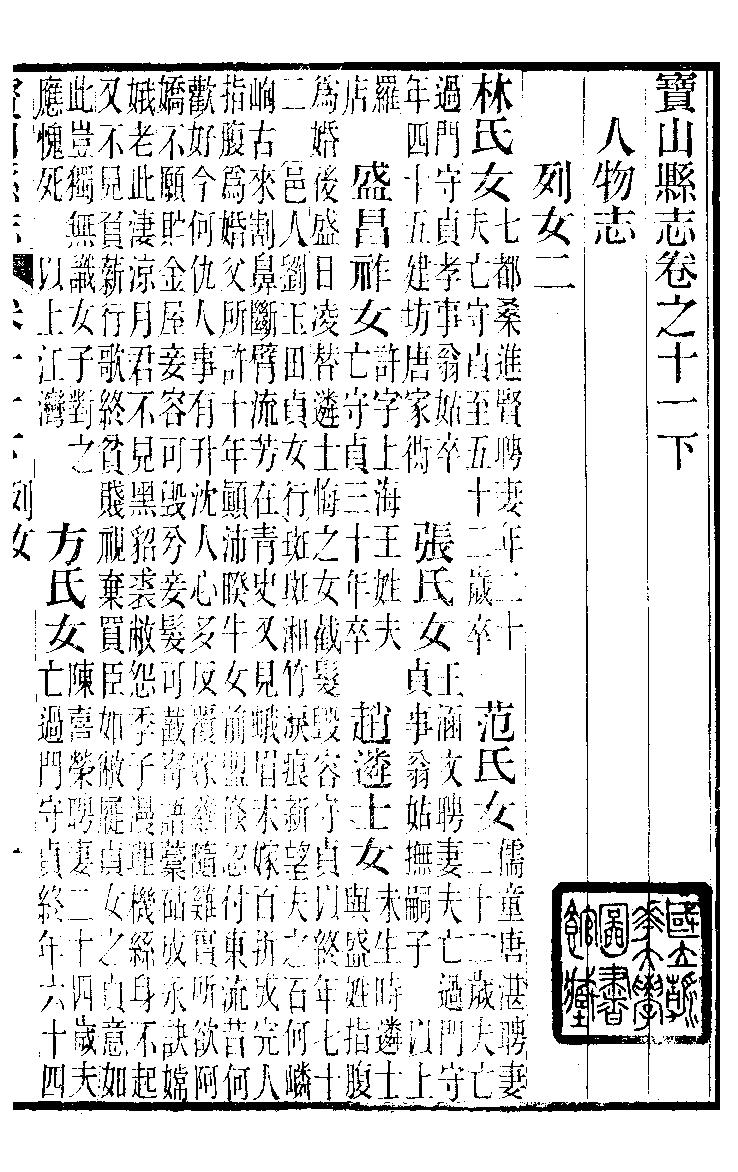 寶山縣志卷之十一下
人物志
列女二
林氏女七都桑進賢聘妻年二十夫亡守貞至五十二歲卒 范氏女儒童唐湛聘妻二十二歲夫亡
過門守貞孝事翁姑卒年四十五建坊唐家衖 張氏女王涵文聘妻夫亡過門守貞事翁姑撫嗣子 以上
羅店 盛昌祚女許字上海王姓夫亡守貞三十年卒 趙遴士女未生時遴士與盛姓指腹
為婚後盛日凌替遴士悔之女截髮毀容守貞以終年七十
二 邑人劉玉田貞女行斑斑湘竹淚痕新望夫之石何嶙
峋古來割鼻斷臂流芳在青史又見蛾眉未嫁百折成完人
指腹爲婚父所許十年顛沛睽牛女前盟倐忽付東流昔何
歡好今何仇人事有升沈人心多反覆嫁雞隨雞實所欲阿
嬌不願貯金屋妾容可毀兮妾髮可截寄語藁砧成永訣嫦
娥老此淒涼月君不見黑貂裘敝怨季子漫理機絲身不起
又不見負薪行歌終貧賤視棄買臣如敝屣貞女之貞意如
此豈獨無識女子對之應愧死 以上江灣 方氏女陳喜榮聘妻二十四歲夫亡過門守貞終年六十四
寶山縣志 卷十一下 列女 一
國立清華大學圖書館藏